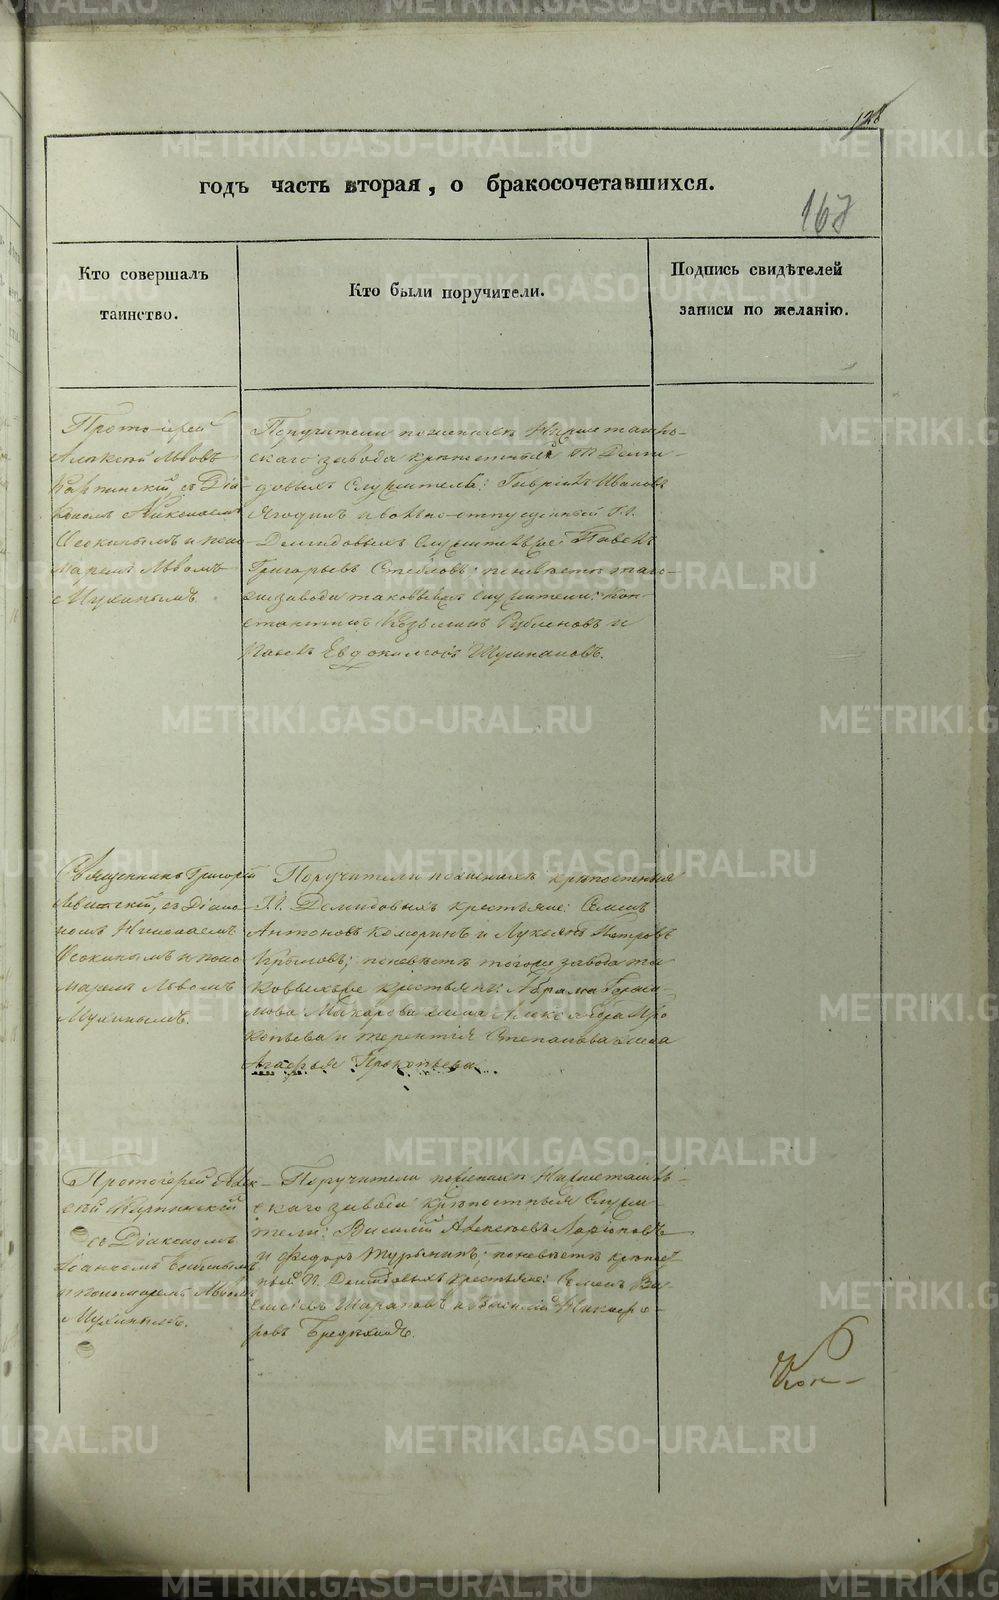 128
годъ часть вторая, о бракосочетавшихся.
167
Кто совершалъ
таинство.
Кто были поручители.
Подпись свидѣтелей
записи по желанію.
Прото-іерей
Алексій Львовъ
Карпинскій, съ Діа-
кономъ Николаемъ
Осокинымъ и поно-
маремъ Львомъ
Мухинымъ.
Поручители по женихѣ Нижнетагиль-
скаго завода крѣпостный Гг. Деми-
довыхъ Служитель: Гавріилъ Ивановъ
Ягодинъ и вольно-отпущенный Гг.
Демидовыхъ Служитель же: Павелъ
Григорьевъ по невѣстѣ того-
же завода таковые же служители: Кон-
стантинъ Козьминъ и
Павелъ Евдокимовъ
Священникъ Григорій
Левитскій, съ Діако-
номъ Николаемъ
Осокинымъ и поно-
маремъ Львомъ
Мухинымъ.
Поручители по женихѣ крѣпостные
Гг. Демидовыхъ крестьяне: Семенъ
Антоновъ Коморинъ и Лукьянъ Петровъ
Крыловъ; по невѣстѣ того же завода та
ковые же крестьяне: Абрама Гераси-
мова Макарова Александра Про
копьева и Терентія Степанова
Прокопьевы.
Протоіерей Алек-
сѣй Карпинскій
съ Діакономъ
и пономаремъ Львомъ
Мухинымъ.
Поручители по женихѣ Нижнетагиль-
скаго завода крѣпостные Служи-
тели: Василій Алексѣевъ Ларіоновъ
и Федоръ по невѣстѣ крѣпост
ные Гг. Демидовыхъ крестьяне: Семенъ Ва-
сильевъ Шараповъ и Василій Никифо-
ровъ
METRIKI.GASO-URAL.RU